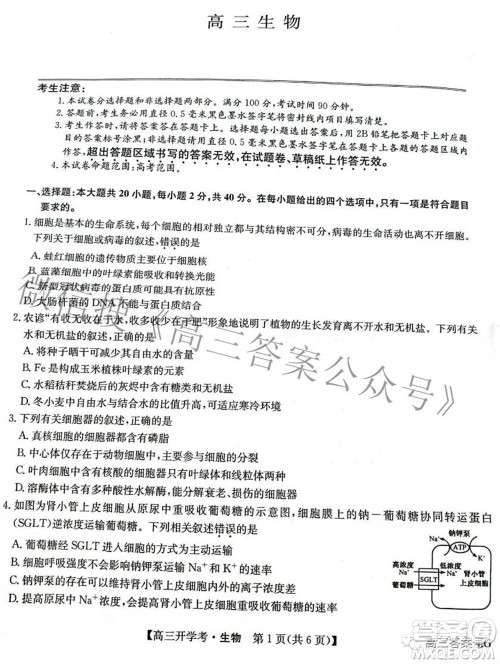 高三生物
考生注意:
1.本试卷分选择题和非选择题两部分。满分100分,考试时间90分钟。
2.答题前,考生务必用直径0.5毫米黑色墨水签字笔将密封线内项目填写清楚。
3.考生作答时,请将答案答在答题卡上。选择题每小题选出答案后,用2B铅笔把答题卡上对应题目的答案标号涂黑;非选择题请用直径0.5毫米黑色墨水签字笔在答题卡上各题的答题区域内作答,
超出答题区域书写的答案无效,在试题卷、草稿纸上作答无效。
4.本试卷命题范围:高考范围。
一、选择题:本大题共20小题,每小题2分,共40分。在每小题给出的四个选项中,只有一项是符合题目
要求的。
1.细胞是基本的生命系统,每个细胞的相对独立性都与其结构密不可分,病毒的生命活动也离不开细胞。
下列关于细胞或病毒的叙述,错误的是
A.蛙细胞的遗传物质主要位于细胞核
B.蓝藻细胞中的叶绿素能吸收和转换光能
C.新型冠状病毒的蛋白质可能具有抗原性
D.大肠杆菌的DNA不能与蛋白质相结合
2.农谚“有收无收在于水,收多收少在于肥”形象地说明了植物的生长发育离不开水和无机盐。下列有关
水和无机盐的叙述,正确的是
A.种子晒干可减少其自由水的含量
B.Fe是构成玉米植株叶绿素的元素
C.水稻秸秆焚烧后的灰烬中含有糖类和无机盐
D.冬小麦中自由水与结合水的比值升高,可提高抗寒性
3.下列有关细胞器的叙述,正确的是
A.真核细胞的细胞器中都含有磷脂
B.中心体仅存在于动物细胞中,其与有丝分裂有关
C.叶肉细胞中含有核酸的细胞器只有线粒体和叶绿体
D.溶酶体中含有多种酸性水解酶,能分解衰老、损伤的细胞器
4.如图为肾小管上皮细胞从原尿中重吸收葡萄糖的示意图,细胞膜上的钠一葡萄糖协同转运蛋白
(SGLT)逆浓度运输葡萄糖。下列相关叙述错误的是
A.葡萄糖经SGLT进入细胞的方式为主动运输
B.细胞呼吸强度不会影响Na⁺和葡萄糖的运输
C.钠钾泵的存在有助于维持肾小管上皮细胞内外Na⁺的浓度差
D.提高原尿中Na⁺浓度,会提高肾小管上皮细胞吸收葡萄糖的速率
钠钾泵
Na⁺
ATP
K⁺
高浓度
Na⁺
SGLT
低浓度
Na⁺
葡萄糖
肾小管
上皮细胞
【高三开学考·生物 第1页(共6页)】
微信搜《高三答案公众号》